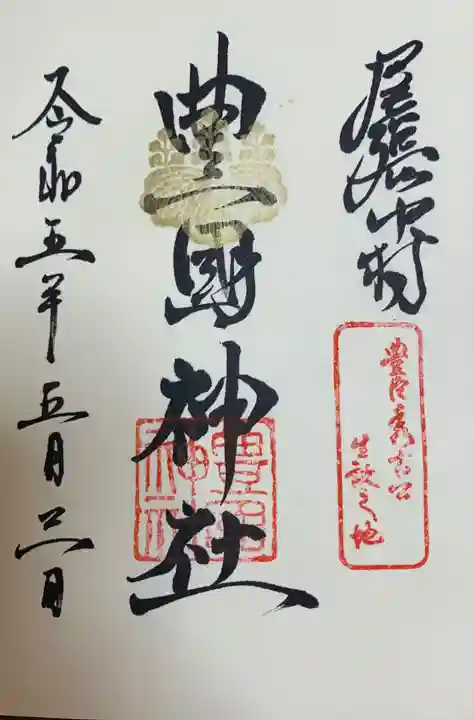 尾張中村
豐臣秀吉公
生誕之地
豊國神社
豊國
神社
令和五年五月六日